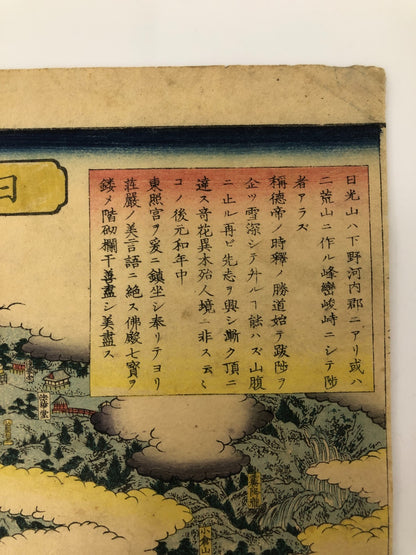 日光山ハ下野河内郡ニアリ或ハ
二荒山ニ作ル峰巒峻峙ニシテ陟
者アラズ
稱德帝ノ時釋ノ勝道始テ跋陟ヲ
企ツ雪深シテ升ルヿ能ハズ山腹
ニ止ル再ビ先志ヲ興シ漸ク頂ニ
達ス奇花異木殆人境ニ非ス云々
コノ後元和年中
東照宮ヲ爰ニ鎮坐シ奉リテヨリ
莊嚴ノ美言語ニ絶ス佛殿七寶ヲ
鏤メ階砌欄干善盡シ美盡ス
日
小倉山